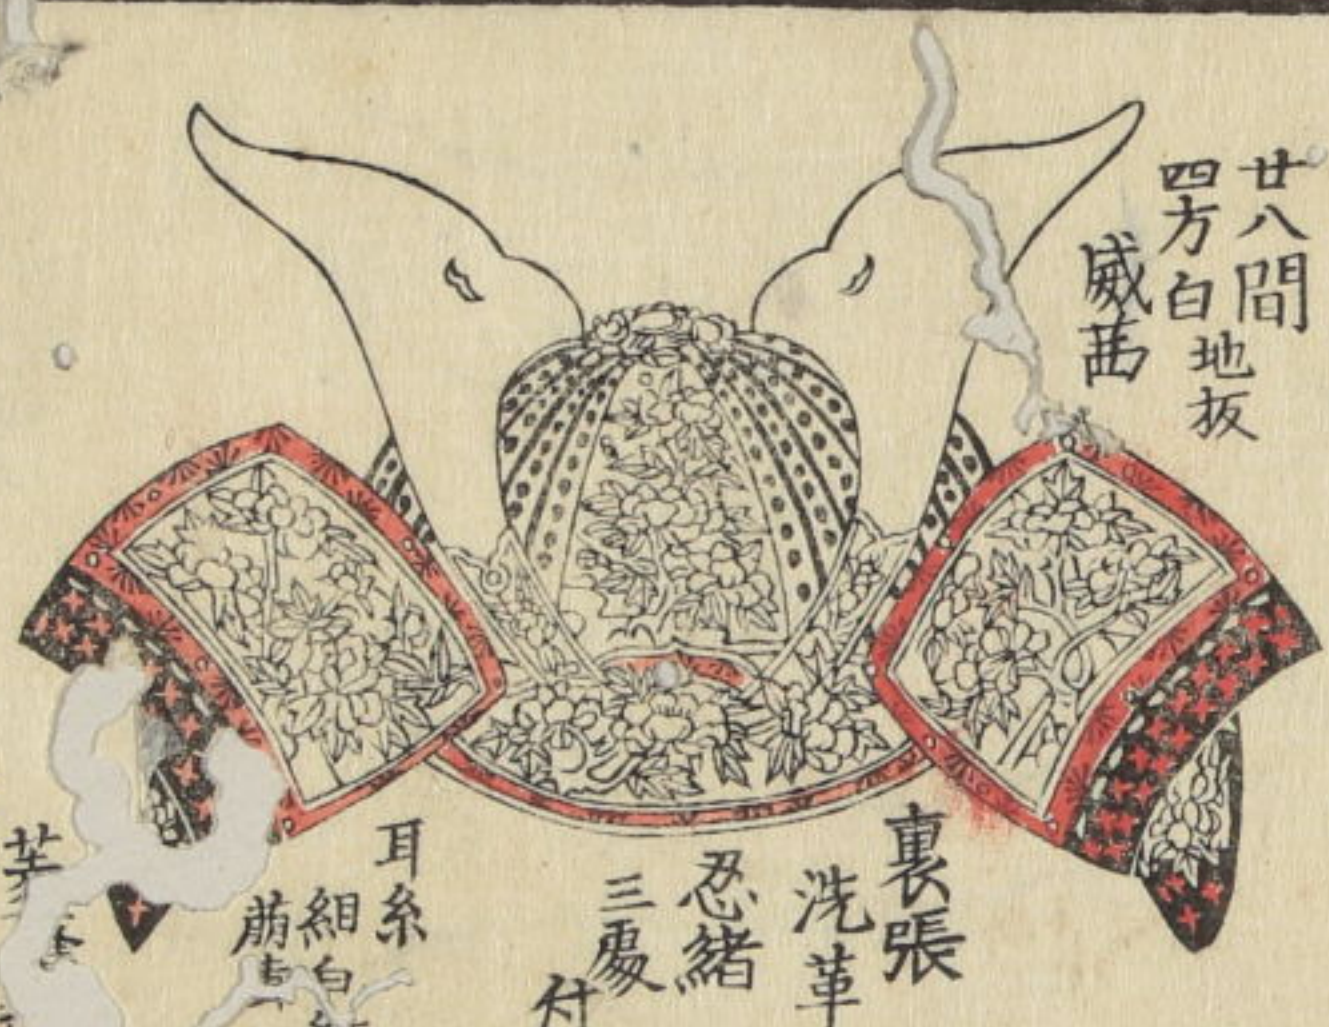 廿八間
四方白
地板
威茜
裏張
洗革
忍緒
三處
付
耳糸
組白
萠